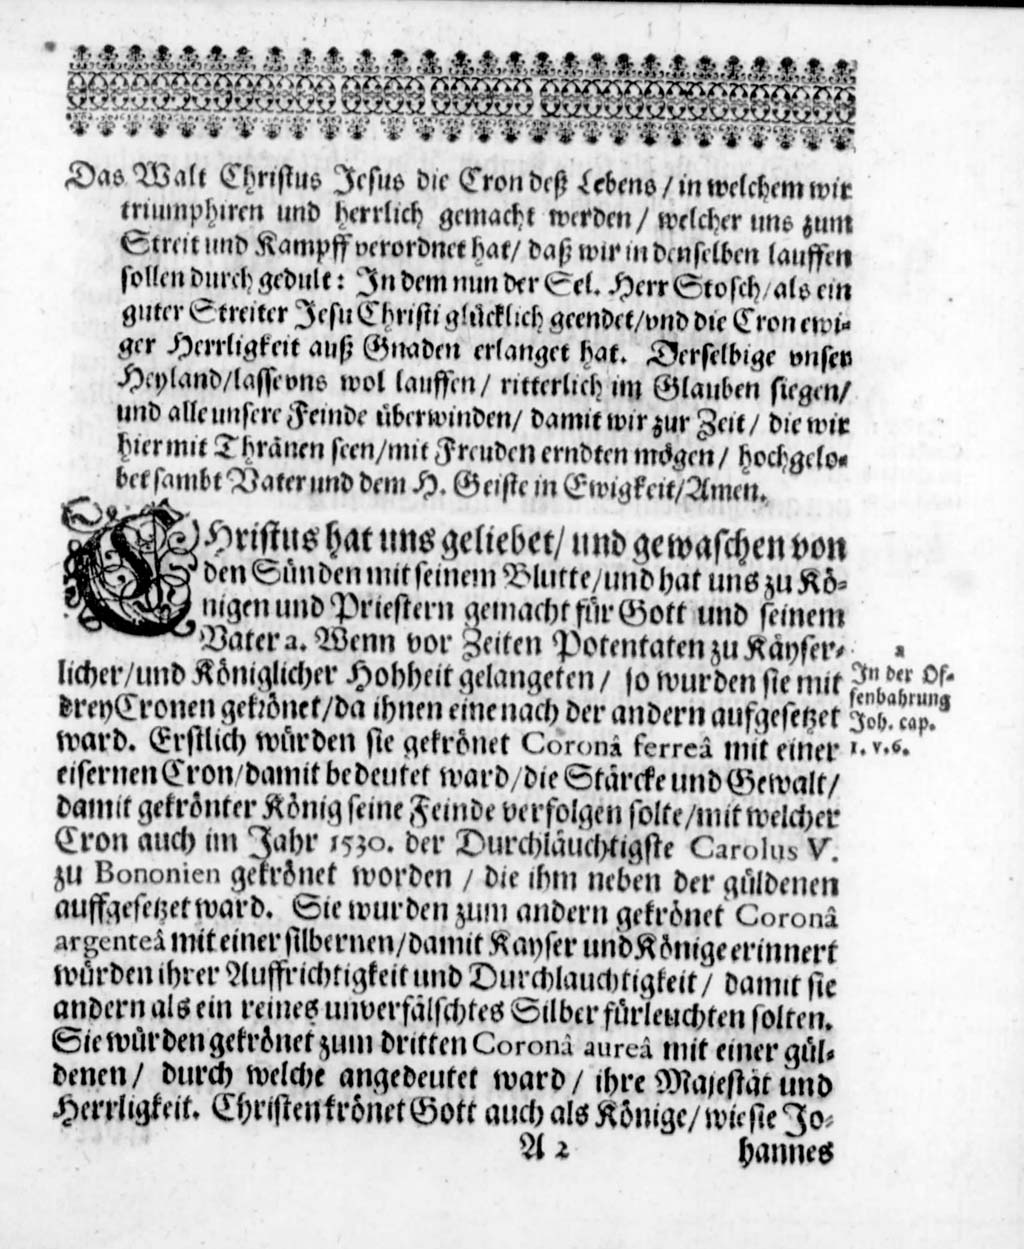 Das Walt Christus Jesus die Cron deß Lebens / in welchem wir
triumphiren und herrlich gemacht werden / welcher uns zum
Streit und Kampff verordnet hat / daß wir in denselben lauffen
sollen durch gedult: In dem nun der Sel. Herr Stosch / als ein
guter Streiter Jesu Christi glücklich geendet / vnd die Cron ewi-
ger Herrligkeit auß Gnaden erlanget hat. Derselbige vnser
Heyland / lasse vns wol lauffen / ritterlich im Glauben siegen /
und alle unsere Feinde überwinden / damit wir zur Zeit / die wir
hier mit Thränen seen / mit Freuden erndten mögen / hochgelo-
bet sambt Vater und dem H. Geiste in Ewigkeit / Amen.
CHristus hat uns geliebet / und gewaschen von
den Sünden mit seinem Blutte / und hat uns zu Kö-
nigen und Priestern gemacht für Gott und seinem
Vater a. Wenn vor Zeiten Potentaten zu Käyser-
licher / und Königlicher Hohheit gelangeten / so wurden sie mit
drey Cronen gekrönet / da ihnen eine nach der andern aufgesetzet
ward. Erstlich würden sie gekrönet Coronâ ferreâ mit einer
eisernen Cron / damit bedeutet ward / die Stärcke und Gewalt /
damit gekrönter König seine Feinde verfolgen solte / mit welcher
Cron auch im Jahr 1530. der Durchläuchtigste Carolus V.
zu Bononien gekrönet worden / die ihm neben der güldenen
auffgesetzet ward. Sie wurden zum andern gekrönet Coronâ
argenteâ mit einer silbernen / damit Kayser und Könige erinnert
würden ihrer Auffrichtigkeit und Durchlauchtigkeit / damit sie
andern als ein reines unverfälschtes Silber fürleuchten solten.
Sie würden gekrönet zum dritten Coronâ aureâ mit einer gül-
denen / durch welche angedeutet ward / ihre Majestät und
Herrligkeit. Christen krönet Gott auch als Könige / wie sie Jo-
A 2 hannes
a
In der Of-
fenbahrung
Joh. cap.
1. v. 6.